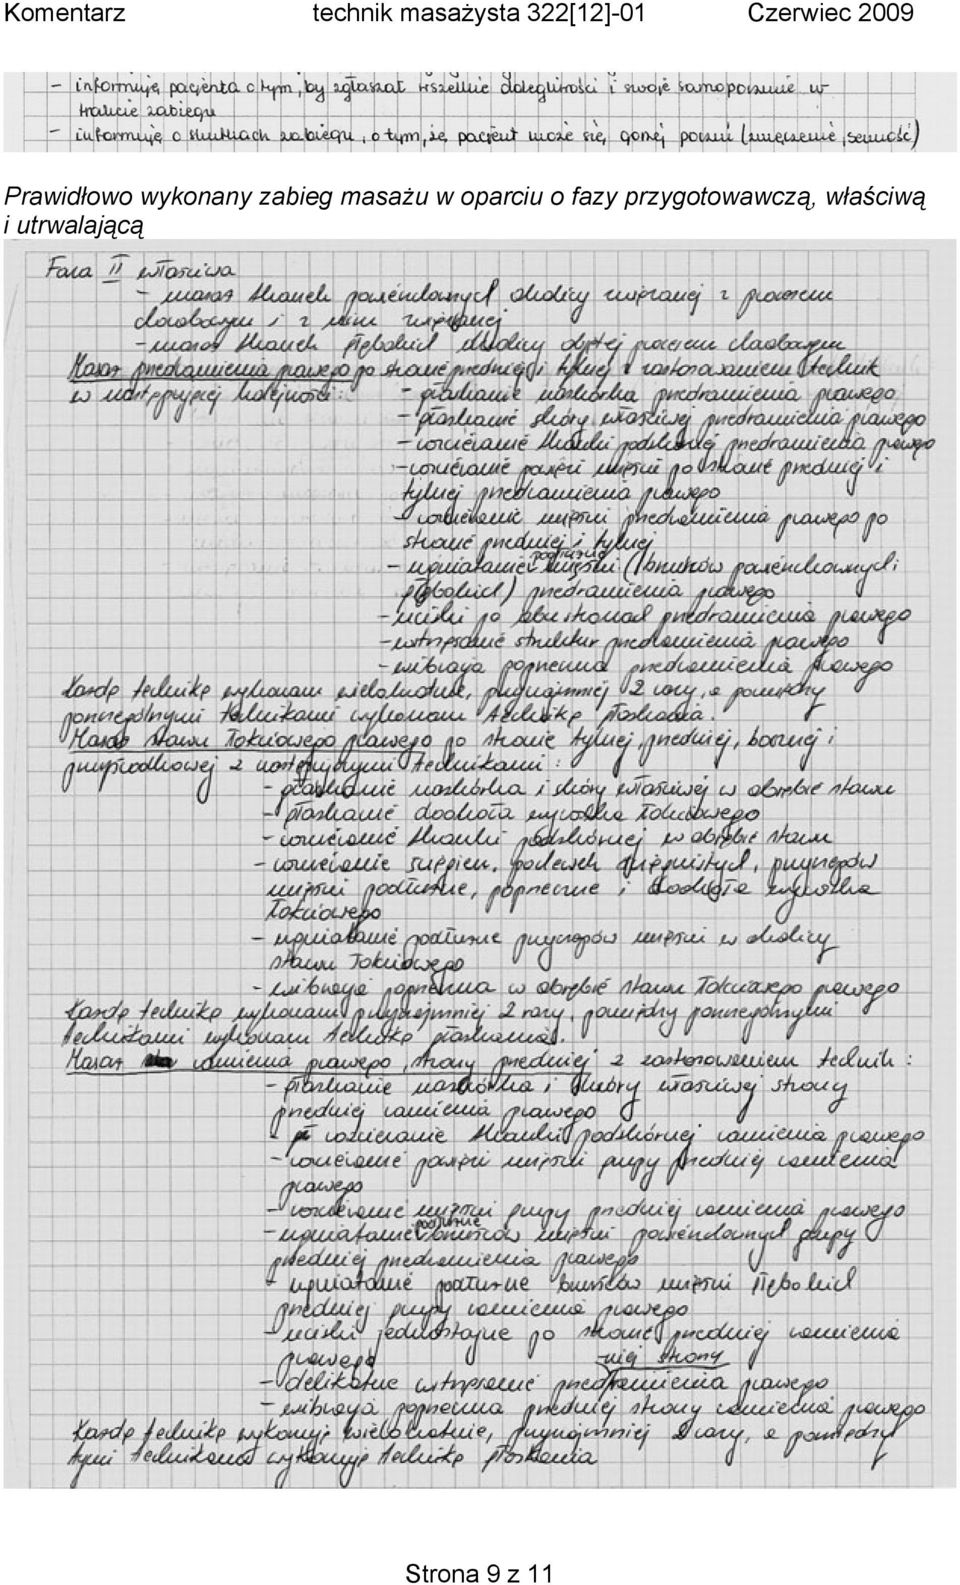 Komentarz technik masażysta 322[12]-01 Czerwiec 2009
- informuję pacjenta o tym, by zgłaszał wszelkie dolegliwości i swoje samopoczucie w
trakcie zabiegu
- informuję o skutkach zabiegu, o tym, że pacjent może się gorzej poczuć (zmęczenie, senność)
Prawidłowo wykonany zabieg masażu w oparciu o fazy przygotowawczą, właściwą
i utrwalającą
Faza II właściwa
- masaż tkanek powierzchownych okolicy związanej z procesem
chorobowym i z nim związanej
- masaż tkanek głębokich okolicy objętej procesem chorobowym
Masaż przedramienia prawego po stronie przedniej i tylnej z zastosowaniem technik
w następującej kolejności: - głaskanie naskórka przedramienia prawego
- głaskanie skóry właściwej przedramienia prawego
- rozcieranie tkanki podskórnej przedramienia prawego
- rozcieranie powięzi mięśni po stronie przedniej i
tylnej przedramienia prawego
- rozcieranie mięśni przedramienia prawego po
stronie przedniej i tylnej
- ugniatanie podłużne mięśni (brzuśców powierzchownych i
głębokich) przedramienia prawego
- uciski po obu stronach przedramienia prawego
- wstrząsanie struktur przedramienia prawego
- wibracja poprzeczna przedramienia prawego
Każdą technikę wykonam wielokrotnie, przynajmniej 2 razy, a pomiędzy
poszczególnymi technikami wykonam technikę głaskania.
Masaż stawu łokciowego prawego po stronie tylnej, przedniej, bocznej i
przyśrodkowej z następującymi technikami:
- głaskanie naskórka i skóry właściwej w obrębie stawu
- głaskanie dookoła wyrostka łokciowego
- rozcieranie tkanki podskórnej w obrębie stawu
- rozcieranie ścięgien, mięśnistych, przyczepów
mięśni podłużne, poprzeczne i dookoła wyrostka
łokciowego
- ugniatanie podłużne przyczepów mięśni w okolicy
stawu łokciowego
- wibracja poprzeczna w obrębie stawu łokciowego prawego
Każdą technikę wykonam przynajmniej 2 razy, pomiędzy poszczególnymi
technikami wykonam technikę głaskania.
Masaż ramienia prawego, strony przedniej z zastosowaniem technik:
- głaskanie naskórka i skóry właściwej strony
przedniej ramienia prawego
- rozcieranie tkanki podskórnej ramienia prawego
- rozcieranie powięzi mięśni grupy przedniej ramienia
prawego
- rozcieranie mięśni grupy przedniej ramienia prawego
- ugniatanie podłużne brzuśców mięśni powierzchownych grupy
przedniej przedramienia prawego
- ugniatanie podłużne brzuśców mięśni głębokich
przedniej grupy ramienia prawego
- uciski jednostajne po stronie przedniej ramienia
prawego
- delikatne wstrząsanie przedniej strony ramienia prawego
- wibracja poprzeczna przedniej strony ramienia prawego
Każdą technikę wykonuję wielokrotnie, przynajmniej 2 razy, a pomiędzy
tymi technikami wykonuję technikę głaskania
Strona 9 z 11